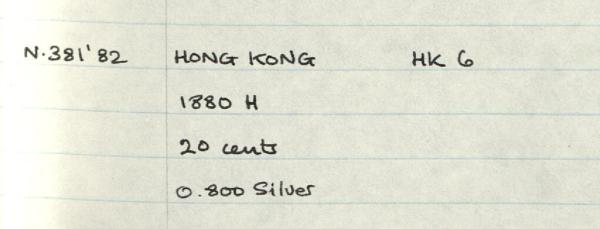 N.381'82 HONG KONG HK 6
1880 H
20 cents
0.800 Silver